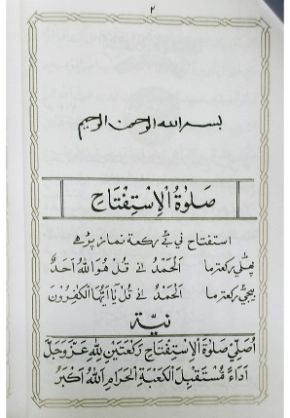 ٢
بسم الله الرحمن الرحيم
صَلٰوةُ الْاِسْتِفْتَاح
استفتاح ني بے ركعة نماز پڑهے
پهلي ركعتما الْحَمْدُ نے قُلْ هُوَ اللهُ اَحَدٌ
بيجي ركعتما الْحَمْدُ نے قُلْ يٰاَيُّهَا الْكٰفِرُوْنَ
نية
اُصَلِّيْ صَلٰوةَ الْاِسْتِفْتَاحِ رَكْعَتَيْنِ لِلّٰهِ عَزَّ وَجَلَّ
اَدَاءً مُسْتَقْبِلَ الْكَعْبَةِ الْحَرَامِ اَللهُ اَكْبَرُ